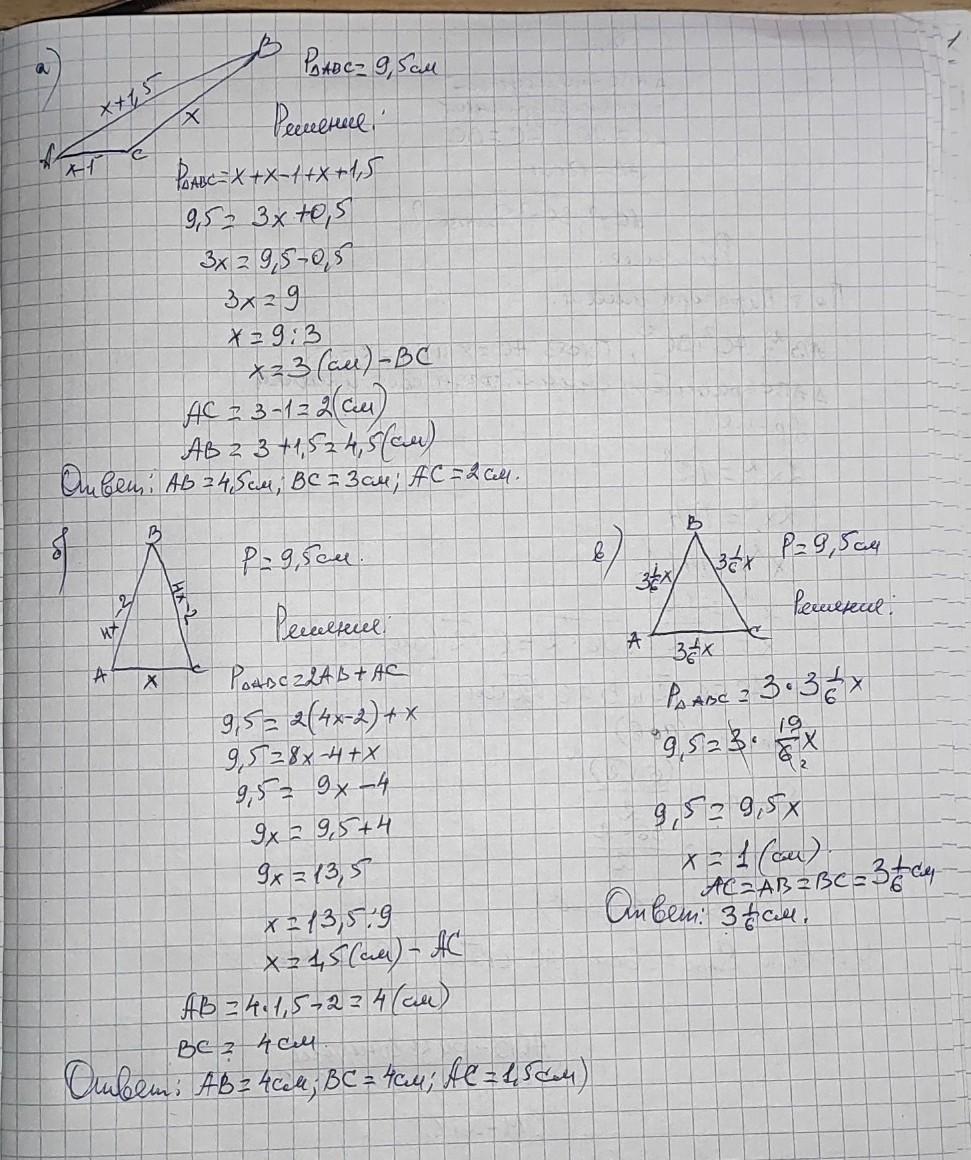 а)
B
P△ABC = 9,5см
x+1,5
x
Решение:
A
x-1
C
P△ABC = x+x-1+x+1,5
9,5 = 3x+0,5
3x = 9,5-0,5
3x = 9
x = 9:3
x = 3(см) - BC
AC = 3-1 = 2(см)
AB = 3+1,5 = 4,5(см)
Ответ: AB = 4,5см; BC = 3см; AC = 2см.
б)
B
P = 9,5см.
4x-2
Решение:
A
x
C
P△ABC = 2AB + AC
9,5 = 2(4x-2)+x
9,5 = 8x-4+x
9,5 = 9x-4
9x = 9,5+4
9x = 13,5
x = 13,5:9
x = 1,5(см) - AC
AB = 4·1,5-2 = 4(см)
BC = 4см.
Ответ: AB = 4см; BC = 4см; AC = 1,5см)
в)
B
P = 9,5см
3 1/6 x
3 1/6 x
Решение:
A
C
3 1/6 x
P△ABC = 3·3 1/6 x
9,5 = 3· 19/6 2 x
9,5 = 9,5x
x = 1(см)
AC = AB = BC = 3 1/6 см
Ответ: 3 1/6 см.